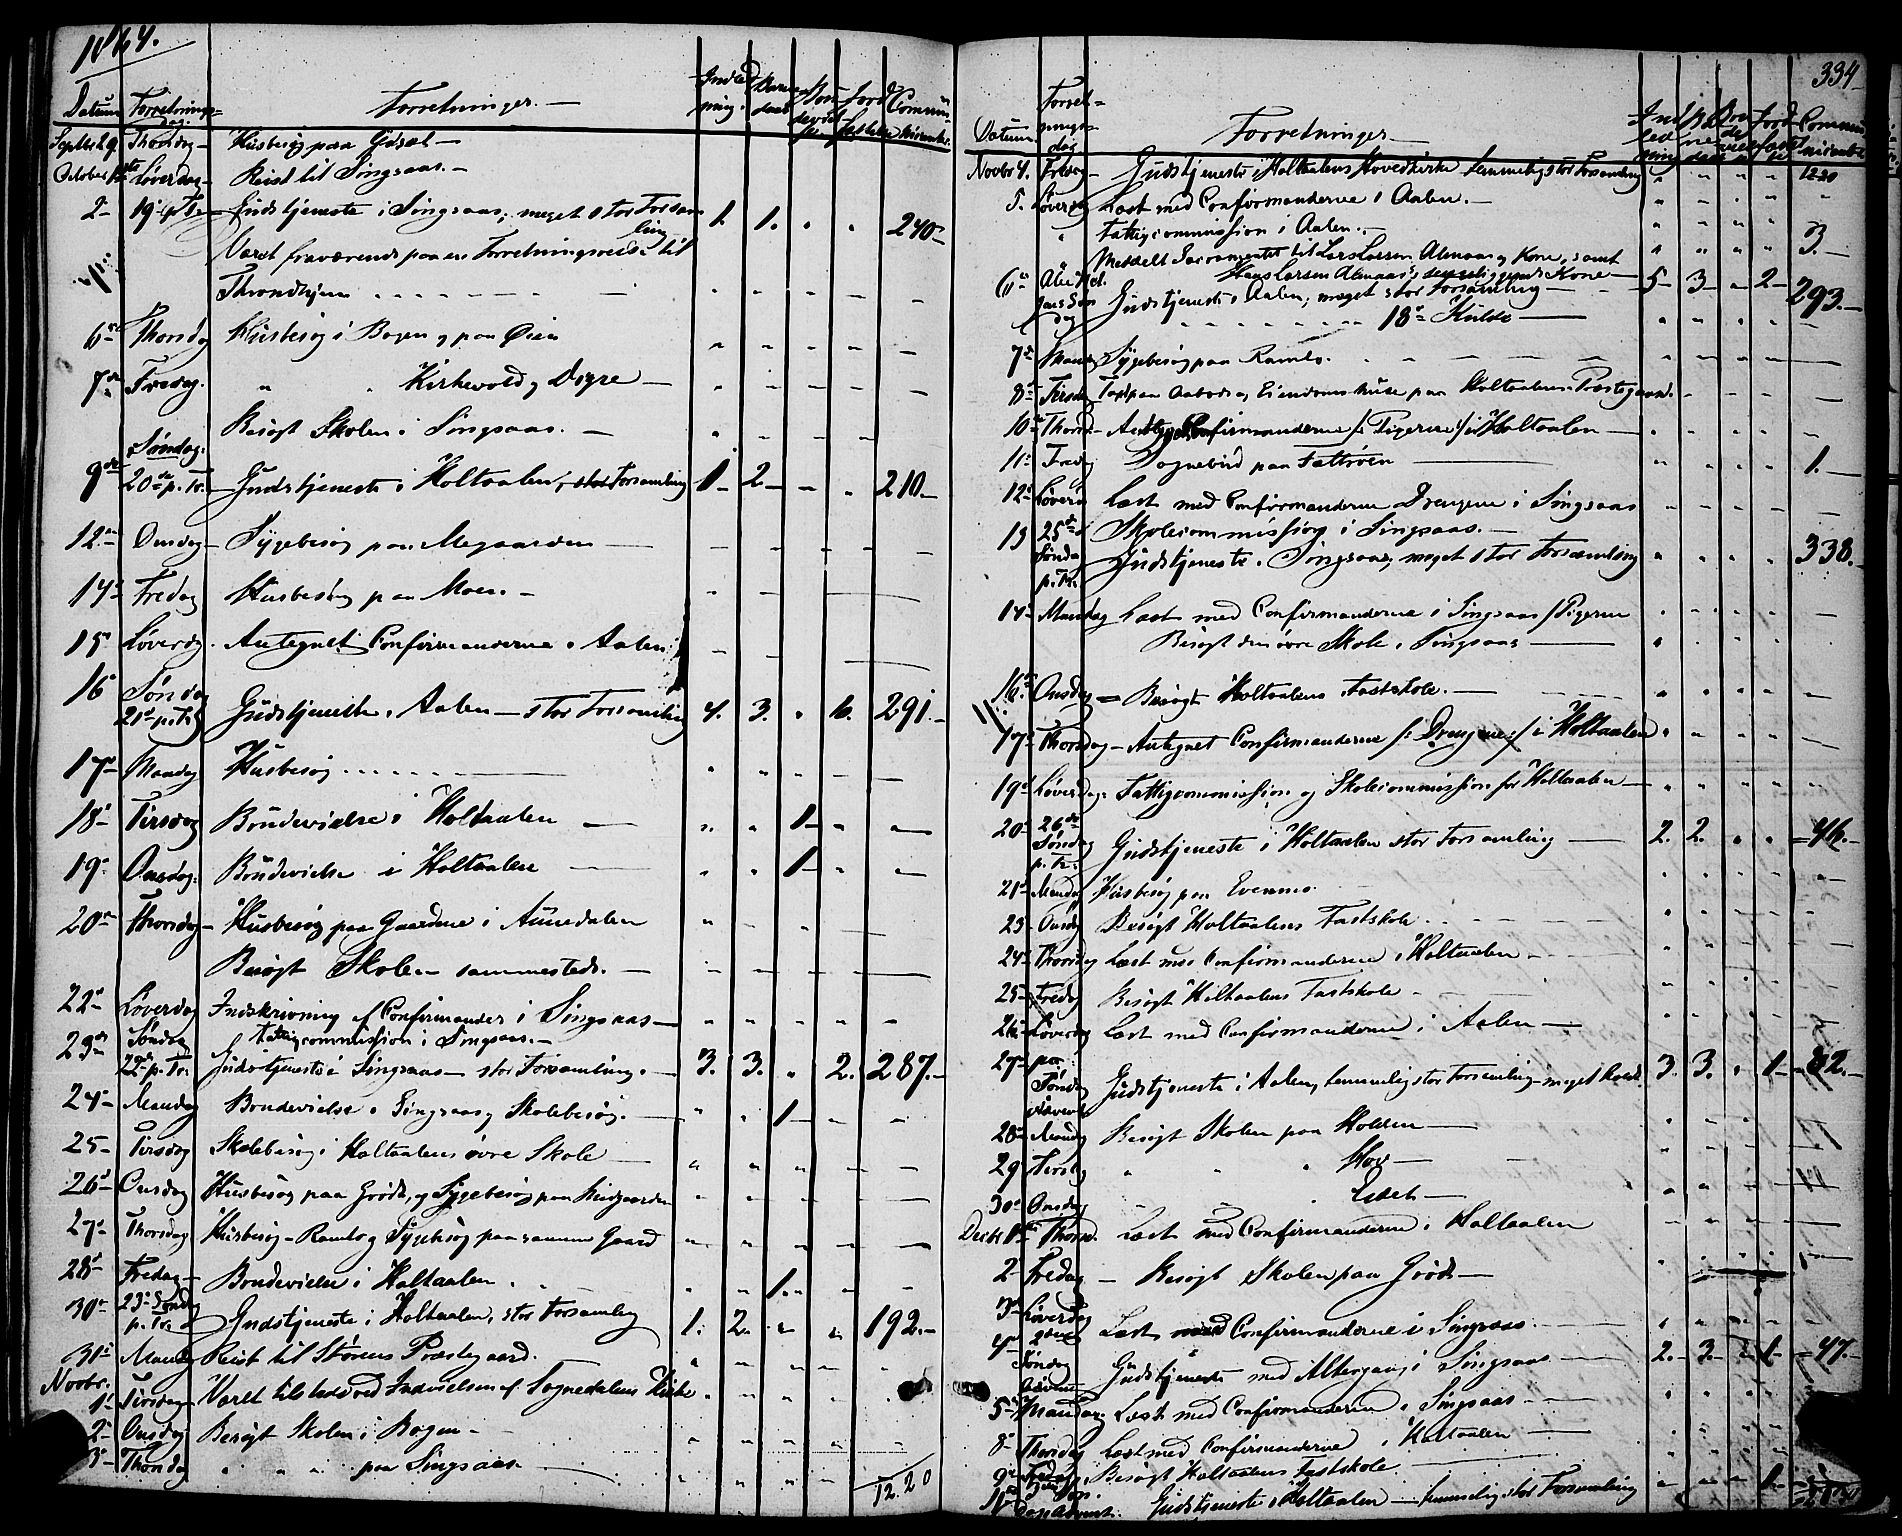 1864.
Datum Forretnings-dag. Forretninger. — Indledning. Barnedaab Bondevielse Jordfæstelse Communicanter.
Septbr 29. Thorsdag Husbesøg paa Gidsæl —
October 1ste Løverdag Reist til Singsaas. —
2- 19de p. Tr. Gudstjeneste i Singsaas, meget stor Forsamling 1. 1. " " 240 —
Været fraværende paa en Forretningsreise til
Throndhjem
6te Thorsdag Husbesøg i Bogen og paa Øien
7de Fredag. " " Kirkevold og Digre —
Besøgt Skolen i Singsaas. —
9de Søndag. 20de p. Tr. Gudstjeneste i Holtaalen, stor Forsamling 1 — 2 — " " 210. —
12te Onsdag — Sygebesøg paa Megaarden
14de Fredag Husbesøg paa Moen. —
15 Løverdag. Antegnet Confirmanderne i Aalen
16 Søndag 21de p. Tr. Gudstjeneste i Aalen — stor Forsamling 4. 3. " 6. 291. —
17de Mandag Husbesøg
18de Tirsdag Bondevielse i Holtaalen — " " 1 — "
19de Onsdag. Bondevielse i Holtaalen — " " 1 — "
20de Thorsdag — Husbesøg paa Gaardene i Aunedalen
Besøgt Skolen sammesteds. —
22de Løverdag Indskrivning af Confirmander i Singsaas —
Fattigcommission i Singsaas. —
23de Søndag 22de p. Tr. Gudstjeneste i Singsaas — stor Forsamling. — 3. 3. " 2. 287. —
24de Mandag Bondevielse i Singsaas og Skolebesøg. — " " 1 — "
25 — Tirsdag Skolebesøg i Holtaalens øvre Skole —
26de Onsdag Husbesøg paa Grøde, og Sygebesøg paa
27de Thorsdag Husbesøg — Ramlo og Sygebesøg paa samme Gaard
28de Fredag — Bondevielse i Holtaalen. " " 1. "
30te 23de Søndag p. Tr. Gudstjeneste i Holtaalen, stor Forsamling 1. 2. " " 192. —
31te Mandag Reist til Størens Præstegaard.
Novbr. 1ste Tirsdag Været tilstede ved Indvielsen af Sognedalens Kirke
2- Onsdag Besøgt Skolen i Bogen —
3- Thorsdag " " " paa Singsaas
12.20
334
Datum Forretningsdag Forretninger — Indledning Barnedaab Bondevielse Jordfæstelse Communicanter
1220
Novbr 4. Fredag — Gudstjeneste i Holtaalens Hovedkirke temmelig stor Forsamling
5. Løverdag Læst med Confirmanderne i Aalen. —
" Fattigcommission i Aalen. —
Meddelt Sacramentet til Lars Larsen Aunaas og Kone, samt 3. —
Hans Larsen Aunaas's Kone —
6te Alle Helgens Søndag Gudstjeneste i Aalen, meget stor Forsamling — 5 — 3 — " 2 — 293. —
18° Kulde —
7de Mandag Sygebesøg paa Ramlo.
8de Tirsdag Taxt paa Holtaalens Præstegaard.
10de Thorsd. — Antegnet Confirmanderne /: Pigerne :/ i Holtaalen
11te Fredag Sognebud paa 1. —
12te Løverd. Læst med Confirmanderne Drengene i Singsaas
Skolecommission i Singsaas. —
13 25de Søndag p. Tr. Gudstjeneste i Singsaas, meget stor Forsamling 338. —
14de Mandag Læst med Confirmanderne i Singsaas /: Pigerne
Besøgt den øvre Skole i Singsaas —
16de Onsdag — Besøgt Holtaalens Fastskole. —
17de Thorsdag — Antegnet Confirmanderne /: Drengene :/ i Holtaalen
19de Løverdag. Fattigcommission og Skolecommission for Holtaalen —
20de 26de Søndag p. Tr. Gudstjeneste i Holtaalen stor Forsamling — 2. 2. " " 46. —
21de Mandag Husbesøg paa Evenmo
23 Onsdag Besøgt Holtaalens Fastskole
24de Thorsdag Læst med Confirmanderne i Holtaalen
25de Fredag Besøgt Holtaalens Fastskole —
26de Løverdag Læst med Confirmanderne i Aalen —
27de Søndag Advent Gudstjeneste i Aalen, temmelig stor Forsamling — meget Kulde 3. 3. " 1 — 82. —
28de Mandag Besøgt Skolen paa Holden —
29 Tirsdag " " " Hov —
30te Onsdag
Decbr 1ste Thorsd. Læst med Confirmanderne i Holtaalen
2- Fredag — Besøgt Skolen paa Grøde —
3de Løverdag Læst med Confirmanderne i Singsaas
4de 2den Søndag Advent Gudstjeneste med Altergang i Singsaas — 2. 3. " 1 — 47. —
5te Mandag Læst med Confirmanderne i Singsaas —
8de Thorsdag Læst med Confirmanderne i Holtaalen —
9de Fredag. Besøgt Holtaalens Fastskole. —
11te 3die Søn. Gudstjeneste i Holtaalen — temmelig stor Forsamling " " " 1.